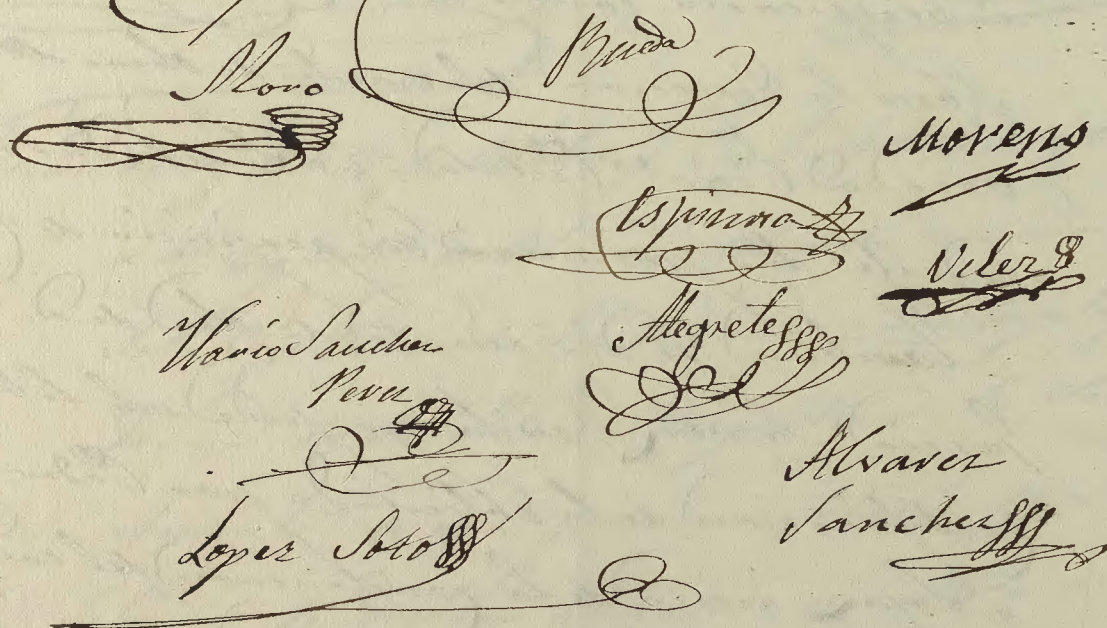 Moro
Rueda
Moreno
Espinosa
Velez
Ilario Sanchez
Perez
Alegrete
Alvarez
Sanchez
Lopez Soto